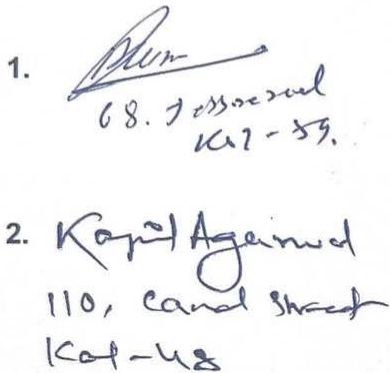 1.
68. Jessore road
Kol - 55.
2. Kapil Agarwal
110, Canal Street
Kol - 48